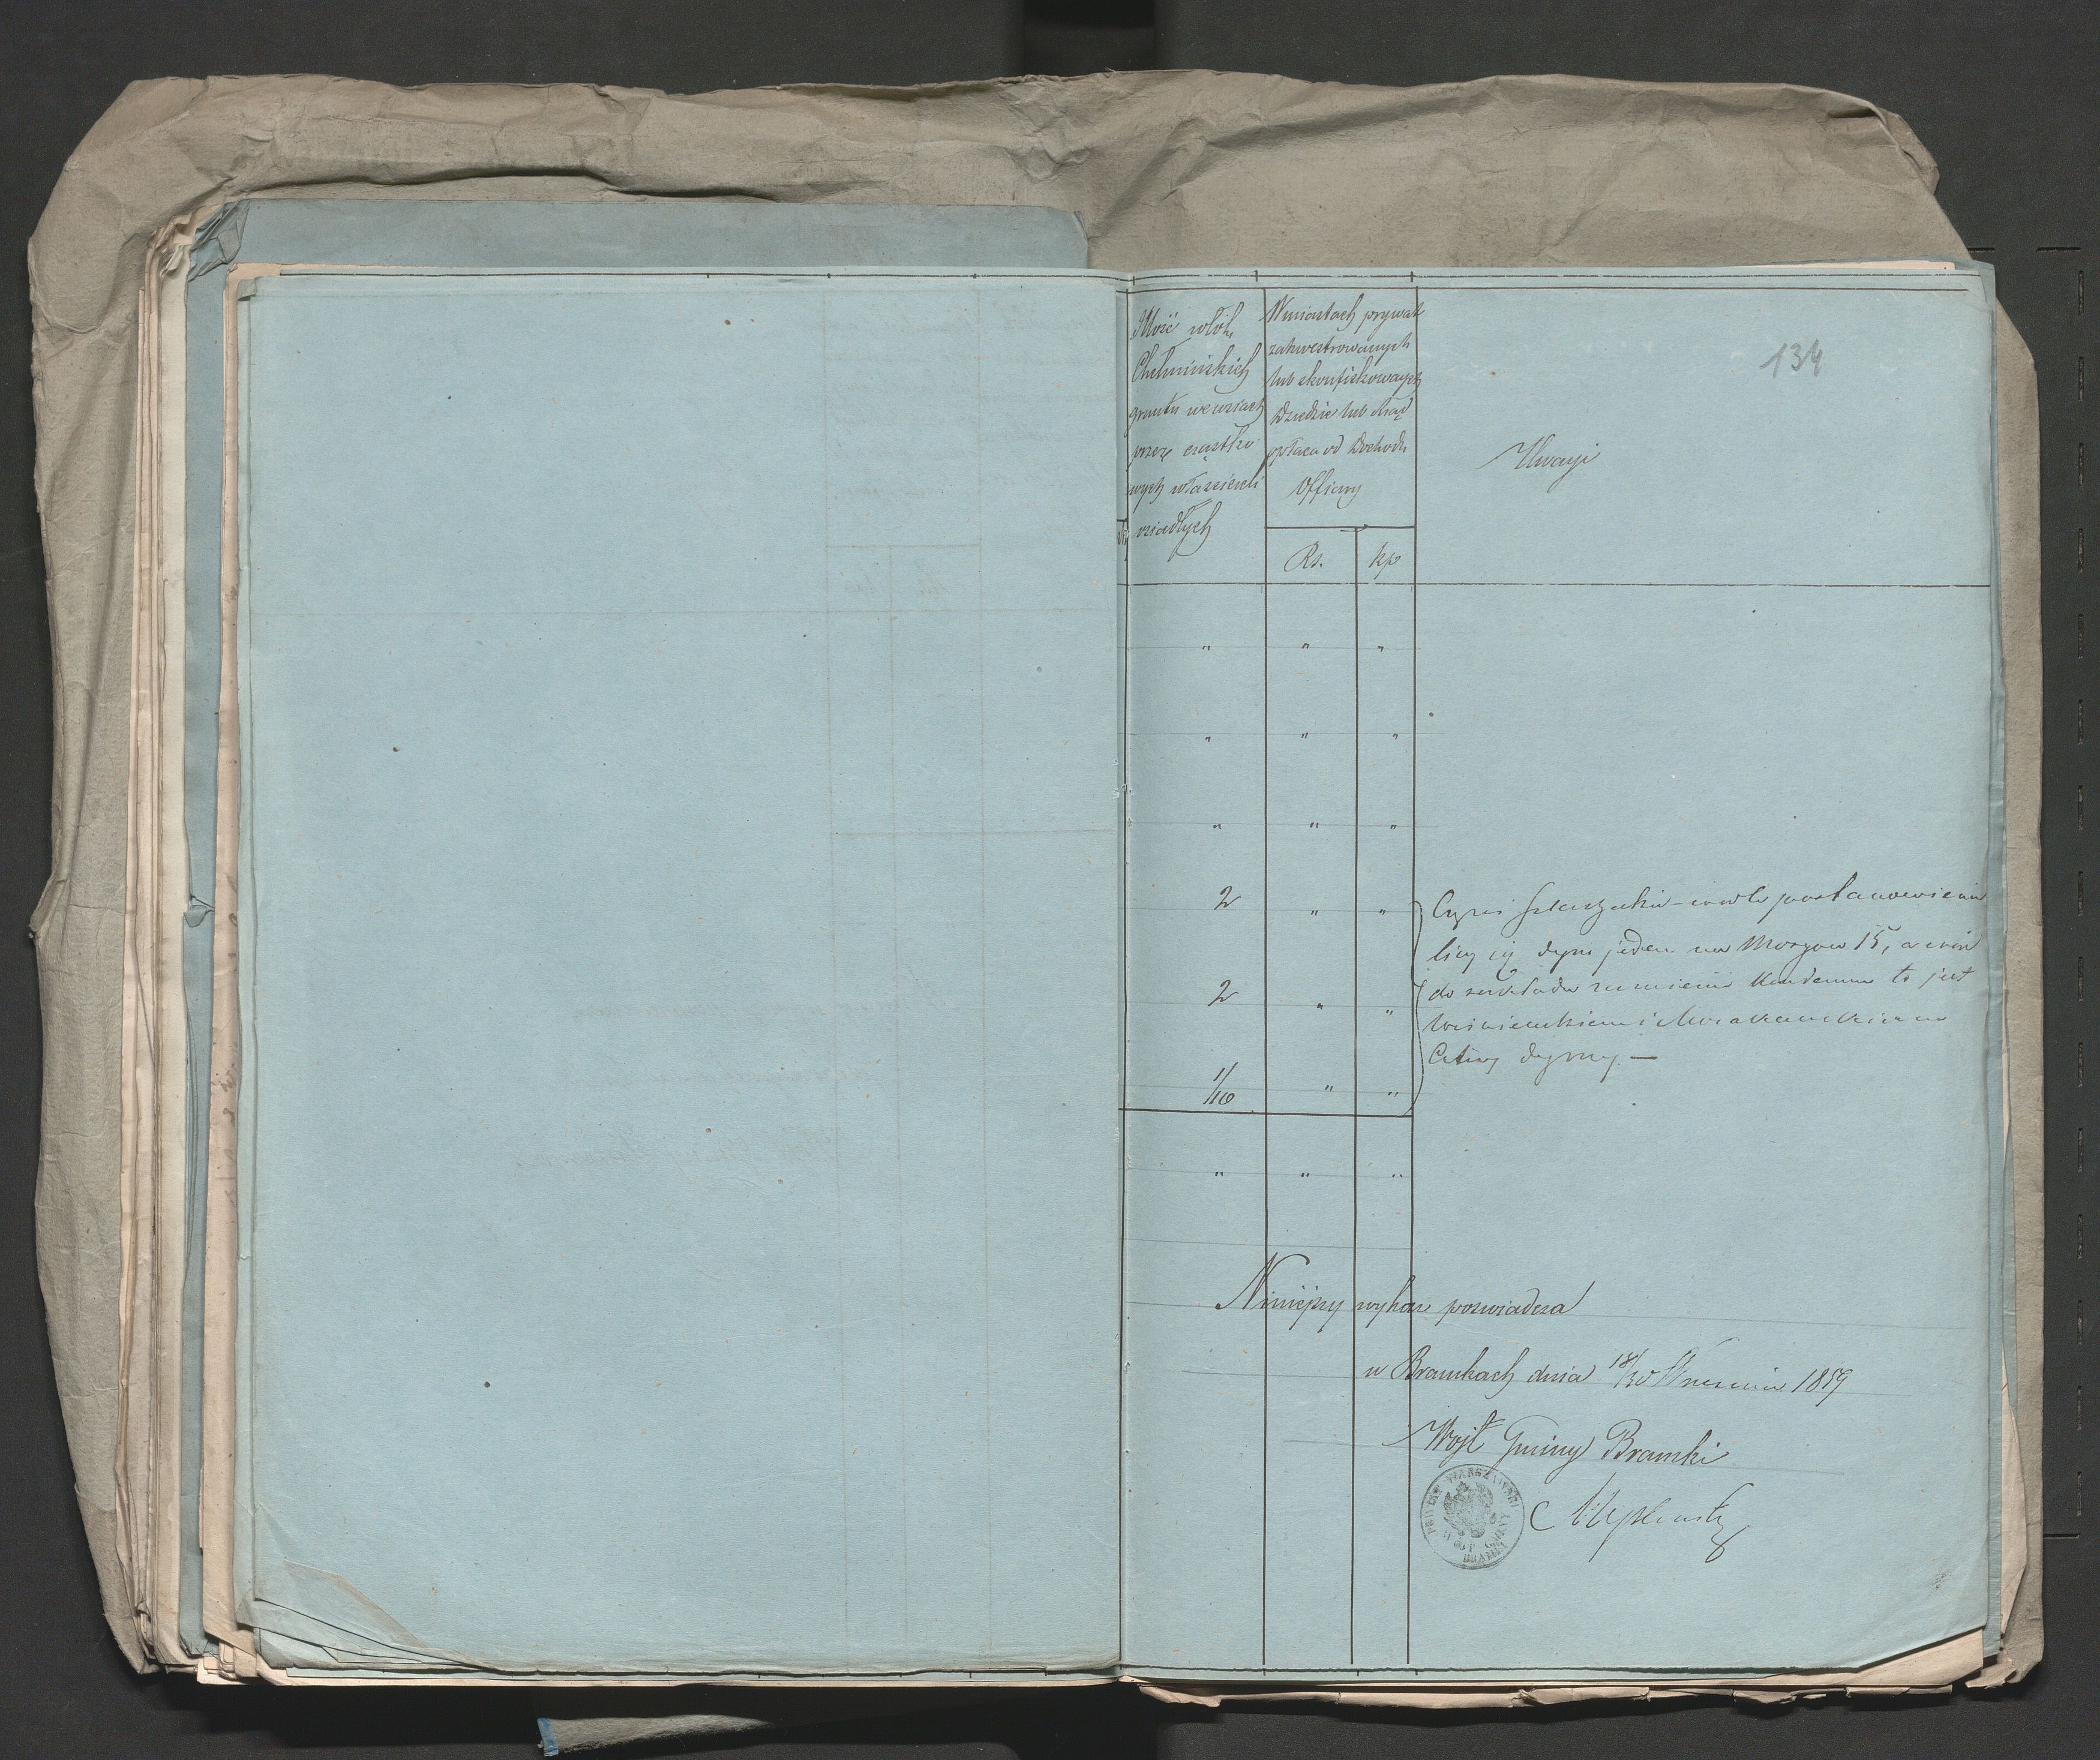 134
Ilość włók
Chełmińskich
gruntu we wsiach
przez cząstko
wych właścicieli
osiadłych
W miastach prywat
zakwestrowanych
lub skonfiskowanych
Dziedzic lub Rząd
opłaca od Dochodu
Officiny
Rs. kp
Uwagi
" " "
" " "
" " "
2 " "
2 " "
1/10 " "
" " "
postanowienia
liczy się dym jeden na Morgów 15, a
do to jest
dymy —
Niniejszy wykaz poswiadcza
w Bramkach dnia 18/30 Wrzesnia 1859
Wojt Gminy Bramki
POWIAT WARSZAWSKI
WÓJT GMINY
BRAMKI